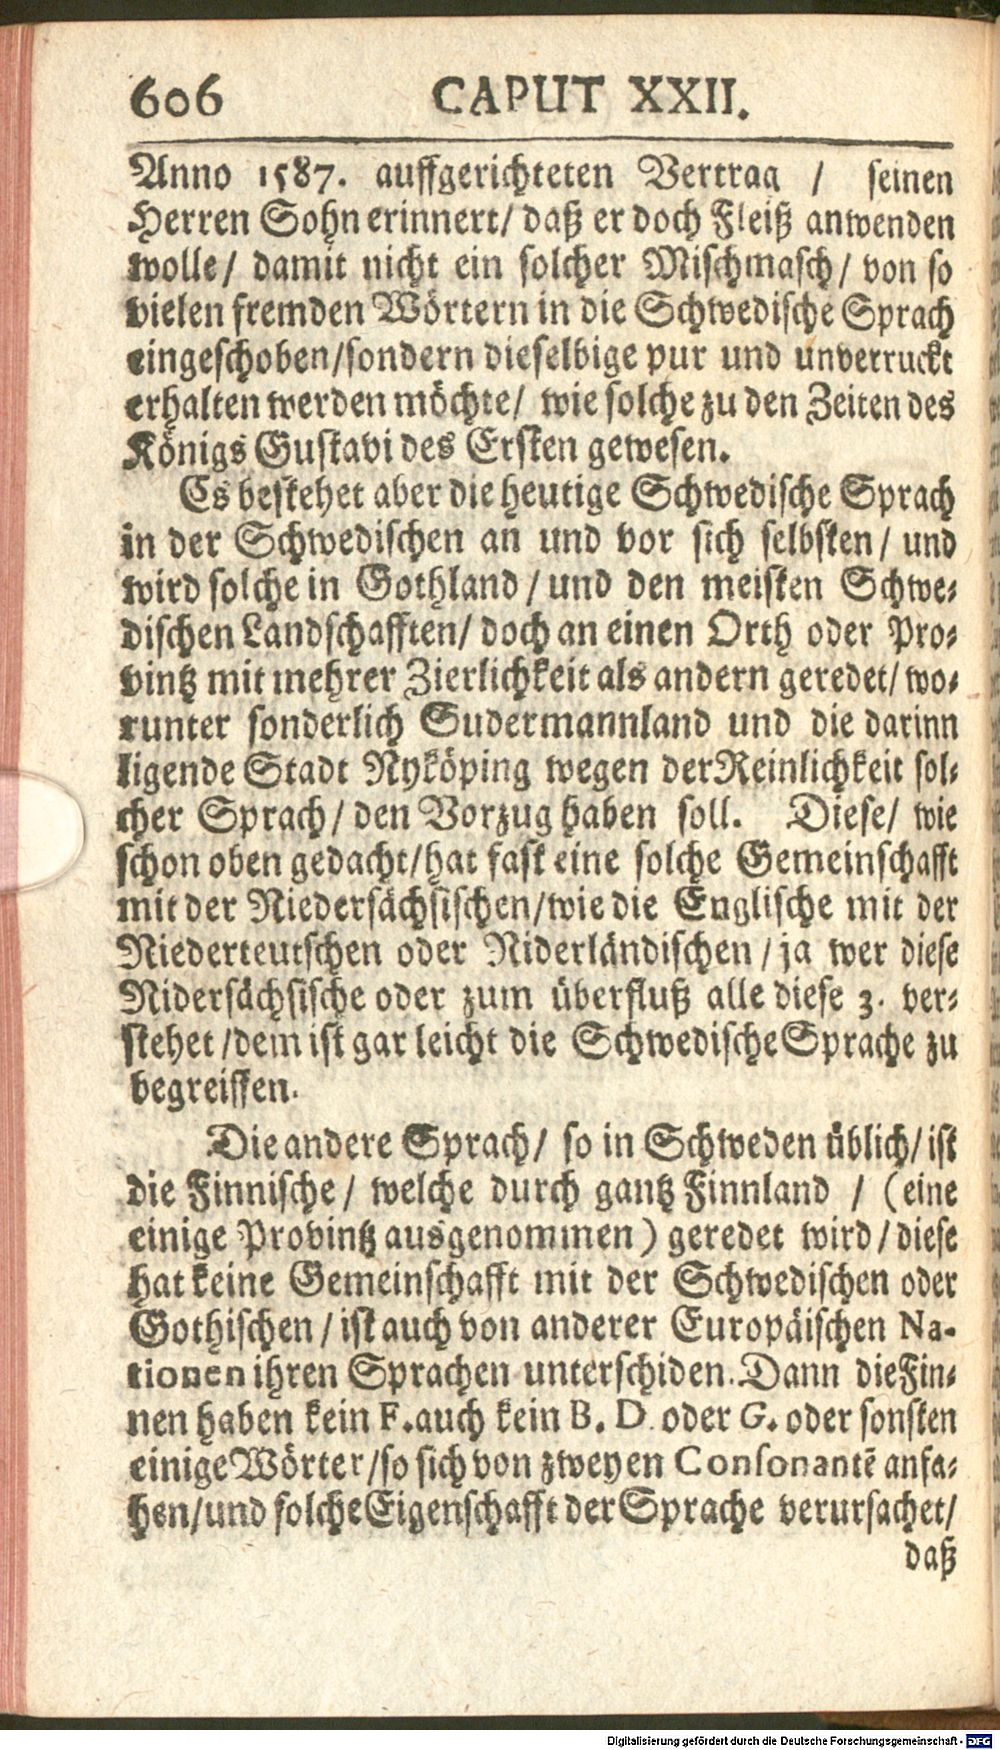 606 CAPUT XXII.
Anno 1587. auffgerichteten Vertrag / seinen
Herren Sohn erinnert/ daß er doch Fleiß anwenden
wolle/ damit nicht ein solcher Mischmasch/ von so
vielen fremden Wörtern in die Schwedische Sprach
eingeschoben/sondern dieselbige pur und unverruckt
erhalten werden möchte/ wie solche zu den Zeiten des
Königs Gustavi des Ersten gewesen.
Es bestehet aber die heutige Schwedische Sprach
in der Schwedischen an und vor sich selbsten/ und
wird solche in Gothland / und den meisten Schwe-
dischen Landschafften/ doch an einen Orth oder Pro-
vintz mit mehrer Zierlichkeit als andern geredet/ wo-
runter sonderlich Sudermannland und die darinn
ligende Stadt Nyköping wegen der Reinlichkeit sol-
cher Sprach/ den Vorzug haben soll. Diese/ wie
schon oben gedacht/hat fast eine solche Gemeinschafft
mit der Niedersächsischen/wie die Englische mit der
Niederteutschen oder Niderländischen / ja wer diese
Nidersächsische oder zum überfluß alle diese 3. ver-
stehet /dem ist gar leicht die Schwedische Sprache zu
begreiffen.
Die andere Sprach/ so in Schweden üblich/ ist
die Finnische/ welche durch gantz Finnland / (eine
einige Provintz ausgenommen) geredet wird / diese
hat keine Gemeinschafft mit der Schwedischen oder
Gothischen / ist auch von anderer Europäischen Na-
tionen ihren Sprachen unterschiden. Dann die Fin-
nen haben kein F. auch kein B. D. oder G. oder sonsten
einige Wörter/so sich von zweyen Consonantē anfa-
hen/und solche Eigenschafft der Sprache verursachet/
daß
Digitalisierung gefördert durch die Deutsche Forschungsgemeinschaft - DFG